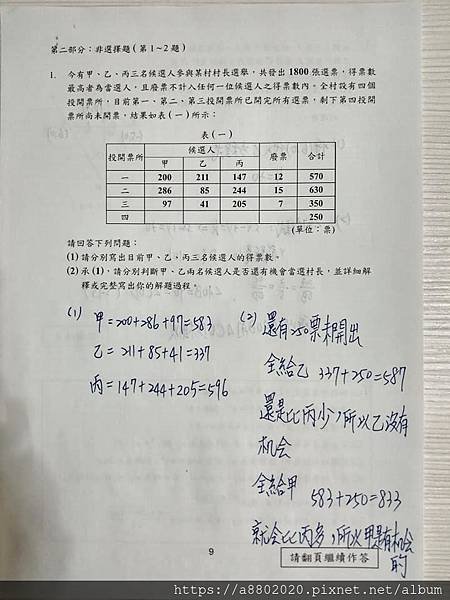 第二部分：非選擇題(第1~2題)
1. 今有甲、乙、丙三名候選人參與某村村長選舉，共發出1800張選票，得票數
最高者為當選人，且廢票不計入任何一位候選人之得票數內。全村設有四個
投開票所，目前第一、第二、第三投開票所已開完所有選票，剩下第四投開
票所尚未開票，結果如表(一)所示：
表(一)
投開票所 候選人 廢票 合計
甲 乙 丙
一 200 211 147 12 570
二 286 85 244 15 630
三 97 41 205 7 350
四 250
(單位：票)
請回答下列問題：
(1) 請分別寫出目前甲、乙、丙三名候選人的得票數。
(2) 承(1)，請分別判斷甲、乙兩名候選人是否還有機會當選村長，並詳細解
釋或完整寫出你的解題過程。
(1) 甲=200+286+97=583
乙=211+85+41=337
丙=147+244+205=596
(2) 還有250票未開出
全給乙 337+250=587
還是比丙少，所以乙沒有
机会
全給甲 583+250=833
就会比丙多，所以甲是有机会
的
9
請翻頁繼續作答
https://a8802020.pixnet.net/album